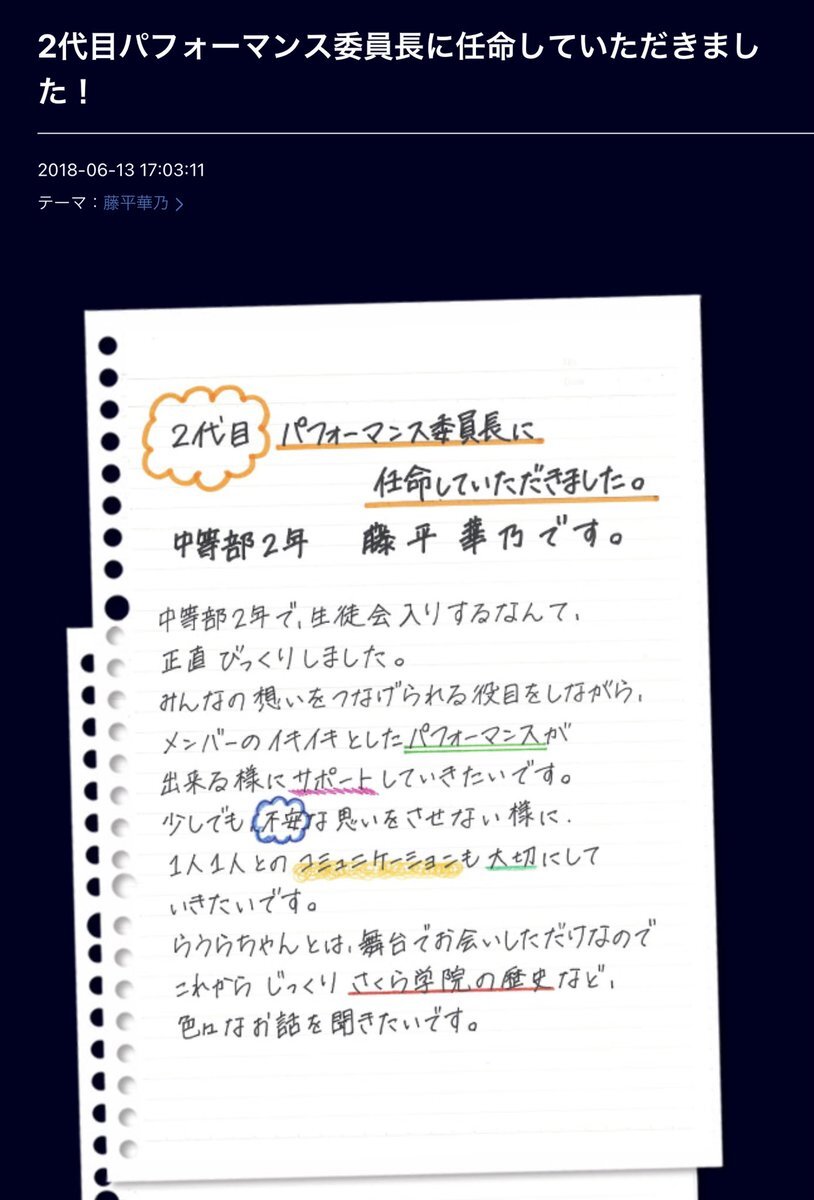 2代目パフォーマンス委員長に任命していただきまし
た！
2018-06-13 17:03:11
テーマ：藤平華乃 >
2代目 パフォーマンス委員長に
任命していただきました。
中等部2年 藤平華乃です。
中等部2年で、生徒会入りするなんて、
正直びっくりしました。
みんなの想いをつなげられる役目をしながら、
メンバーのイキイキとしたパフォーマンスが
出来る様にサポートしていきたいです。
少しでも、不安な思いをさせない様に、
1人1人とのコミュニケーションも大切にして
いきたいです。
らうらちゃんとは、舞台でお会いしただけなので
これからじっくりさくら学院の歴史など、
色々なお話を聞きたいです。